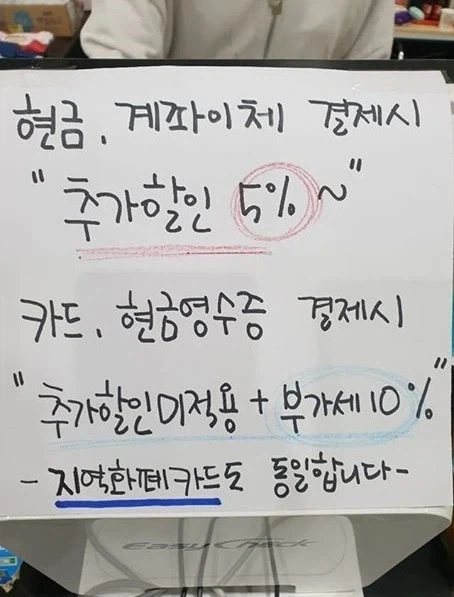 현금, 계좌이체 결제시
"추가할인 5%~"
카드, 현금영수증 결제시
"추가할인미적용 + 부가세10%"
- 지역화폐카드도 동일합니다-
Easy Check